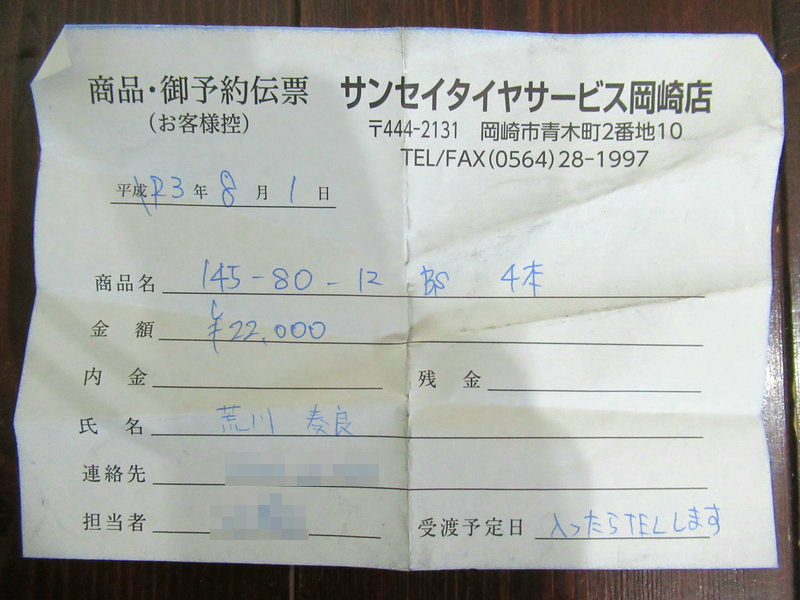 商品・御予約伝票
(お客様控)
サンセイタイヤサービス岡崎店
〒444-2131 岡崎市青木町2番地10
TEL/FAX(0564)28-1997
平成 R3年 8月 1日
商品名 145-80-12 BS 4本
金額 ¥22,000
内金
残金
氏名 荒川 奏良
連絡先
担当者
受渡予定日 入ったらTELします